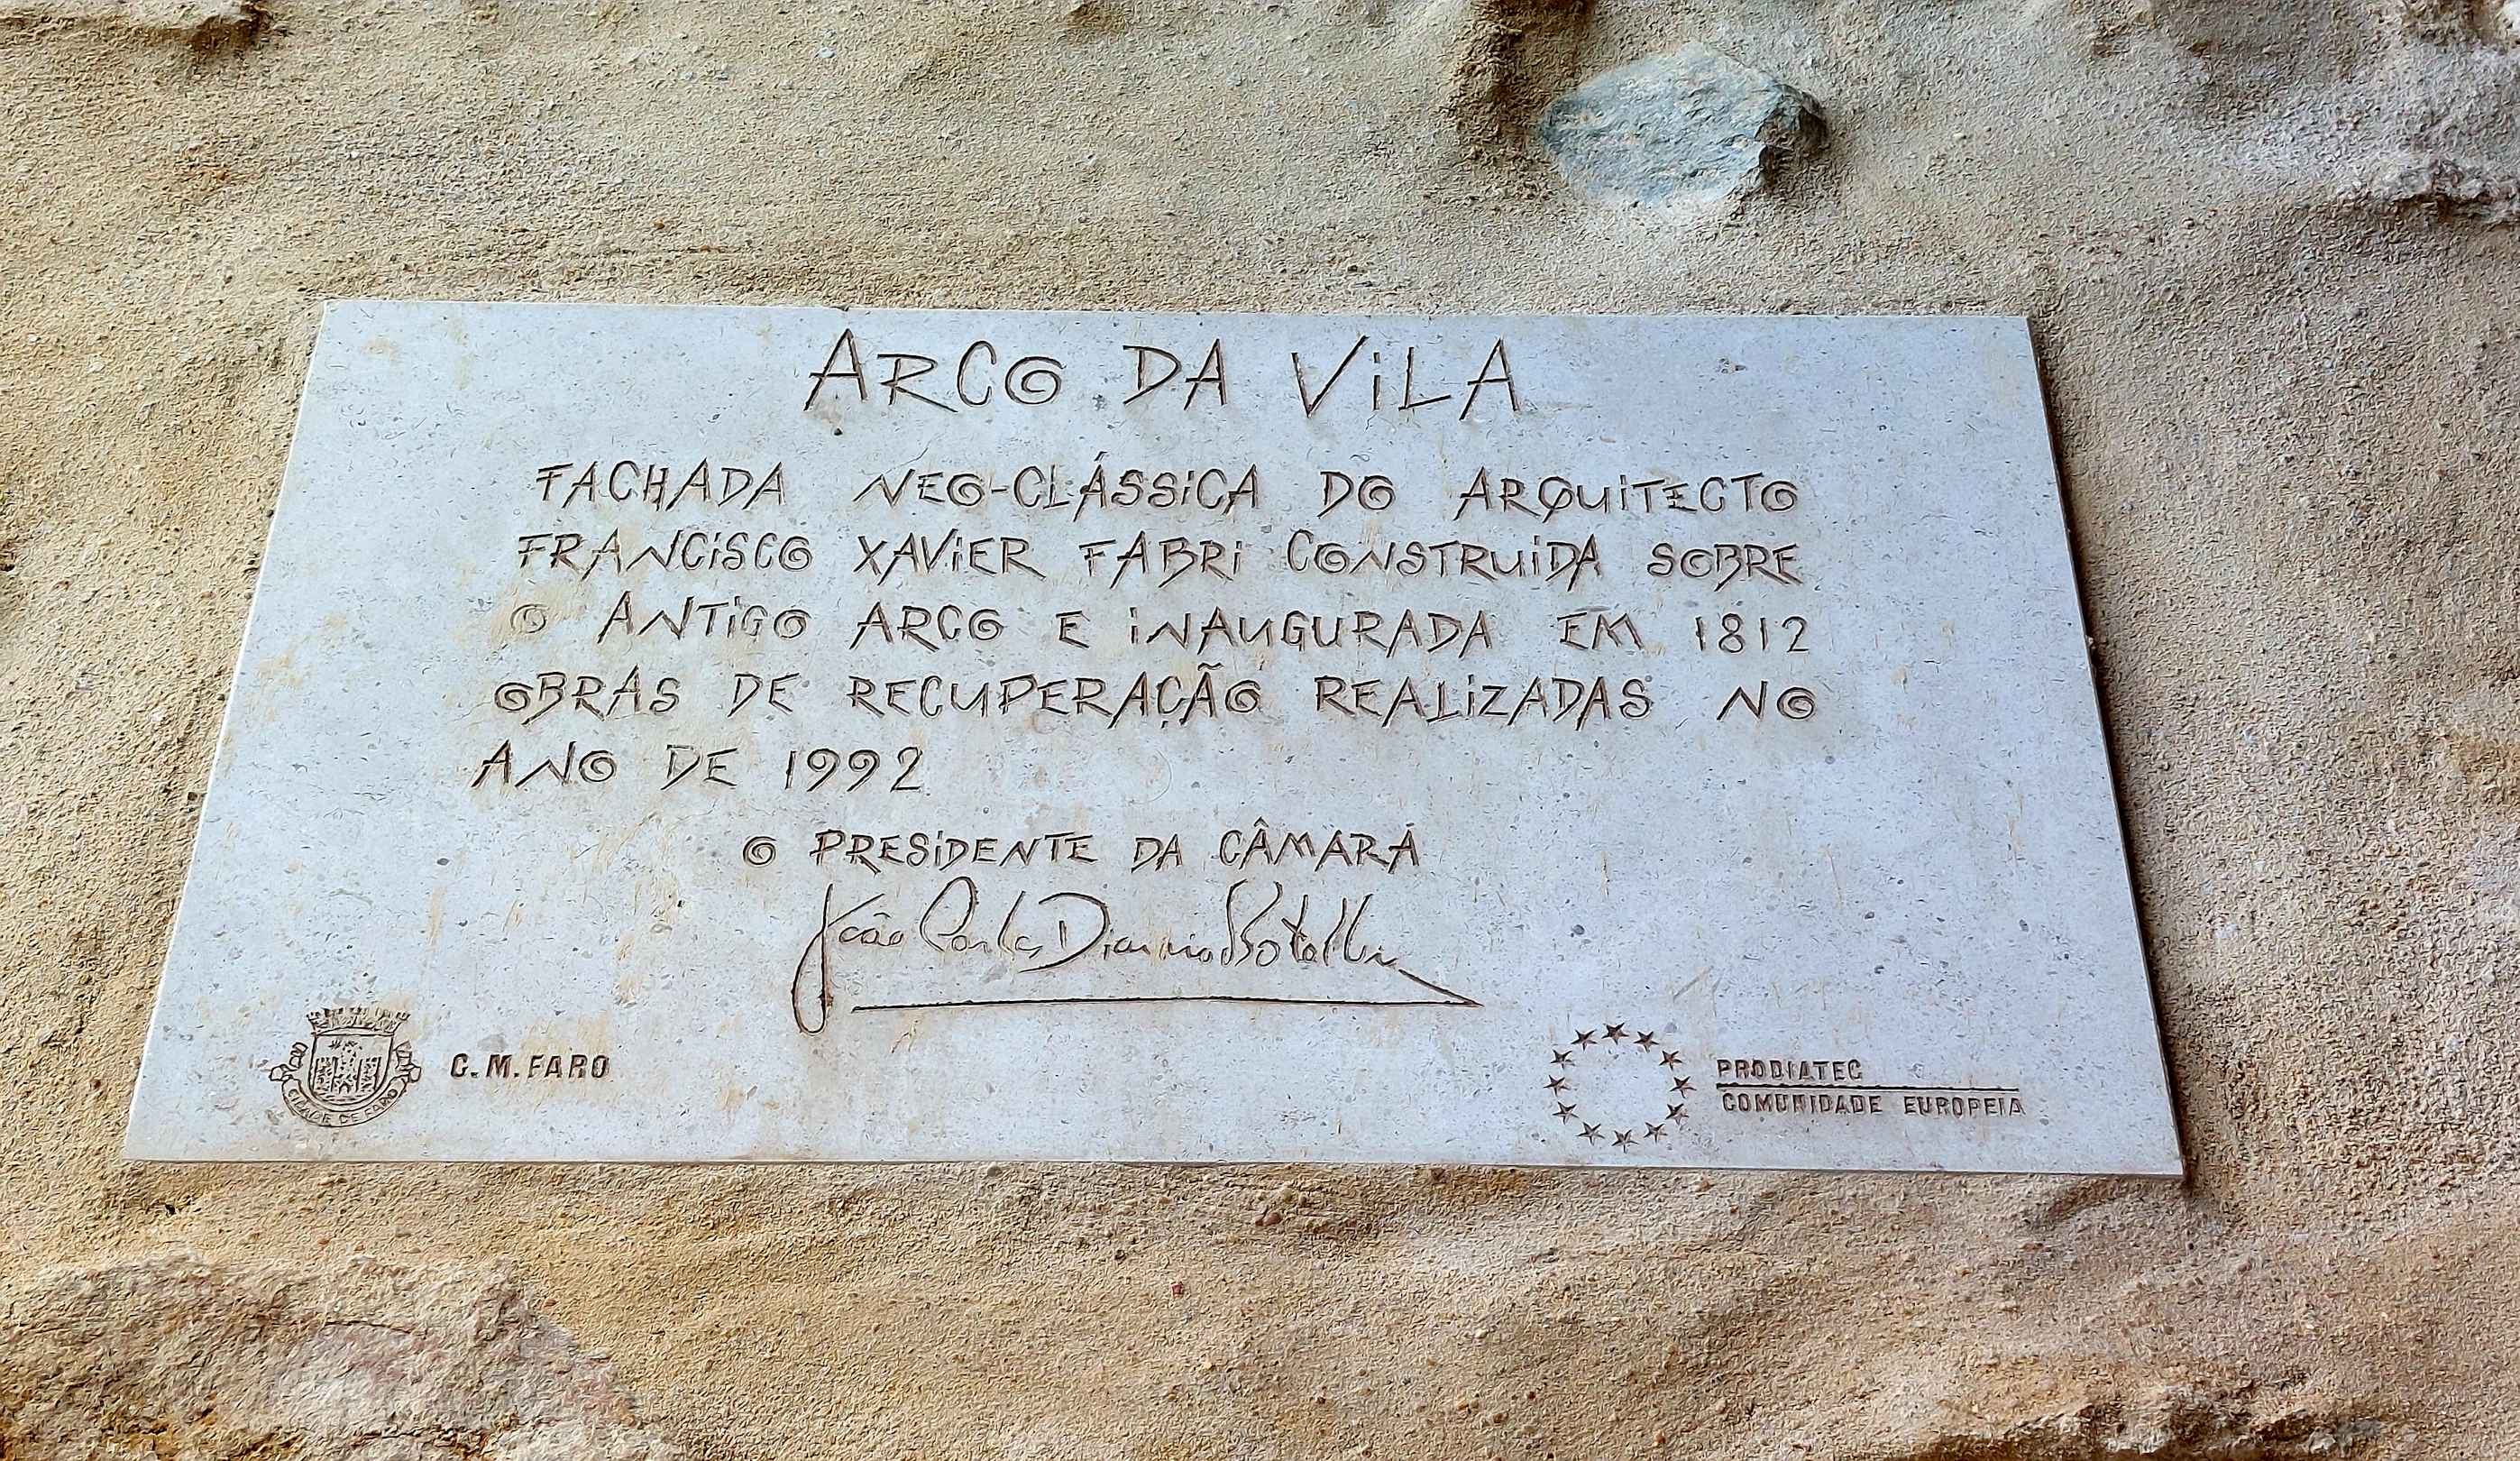 ARCO DA ViLA
FACHADA NEO-CLÁSSiCA DO ARQUiTECTO
FRANCiSCO XAViER FABRi CONSTRUiDA SOBRE
O ANTiGO ARCO E iNAUGURADA EM 1812
OBRAS DE RECUPERAÇÃO REALiZADAS NO
ANO DE 1992
O PRESiDENTE DA CÂMARA
João Carlos Dias Botelho
C. M. FARO
CIDADE DE FARO
PRODIATEC
COMUNIDADE EUROPEIA